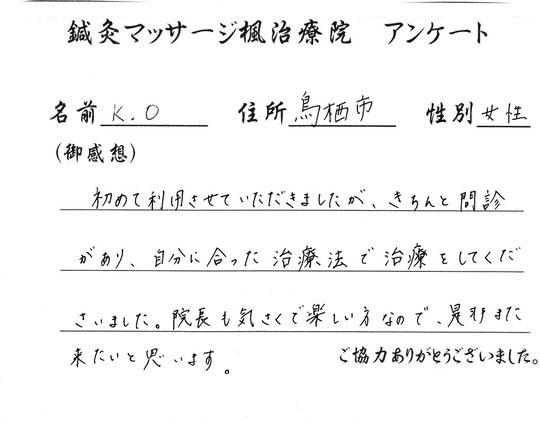 鍼灸マッサージ楓治療院 アンケート
名前 K.O 住所 鳥栖市 性別 女性
(御感想)
初めて利用させていただきましたが、きちんと問診
があり、自分に合った治療法で治療をしてくだ
さいました。院長も気さくで楽しい方なので、是非また
来たいと思います。 ご協力ありがとうございました。